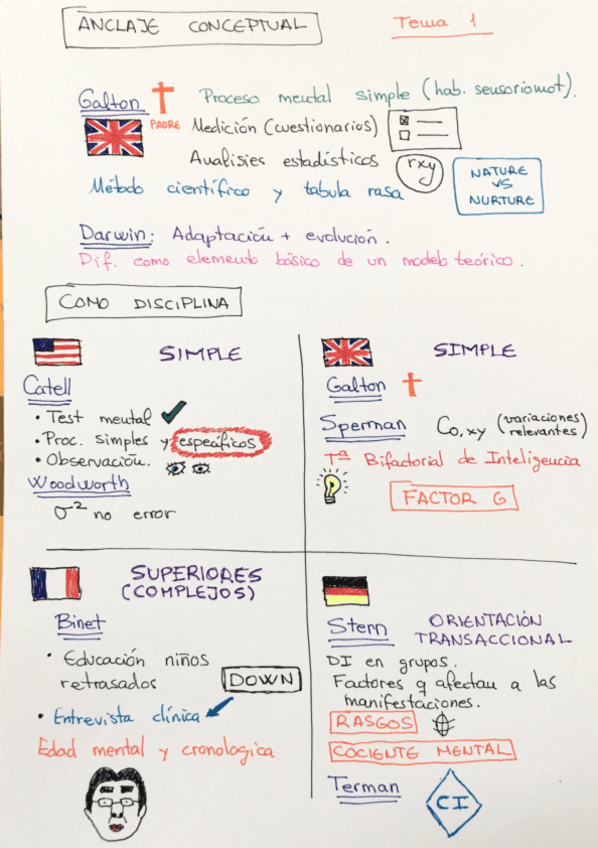 ANCLAJE CONCEPTUAL
Tema 1
Galton
Proceso mental simple (hab. sensoriomot).
PADRE
Medición (cuestionarios)
Analisies estadísticos
rxy
NATURE
VS
NURTURE
Método científico y tabula rasa
Darwin: Adaptación + evolución.
Dif. como elemento básico de un modelo teórico.
COMO DISCIPLINA
SIMPLE
Catell
• Test mental
• Proc. simples y específicos
• Observación.
Woodworth
σ² no error
SIMPLE
Galton
Sperman
Co,xy (variaciones relevantes)
Tª Bifactorial de Inteligencia
FACTOR G
SUPERIORES
(COMPLEJOS)
Binet
• Educación niños
retrasados
DOWN
• Entrevista clínica
Edad mental y cronologica
Stern
ORIENTACIÓN
TRANSACCIONAL
DI en grupos.
Factores q afectan a las
manifestaciones.
RASGOS
COCIENTE MENTAL
Terman
CI